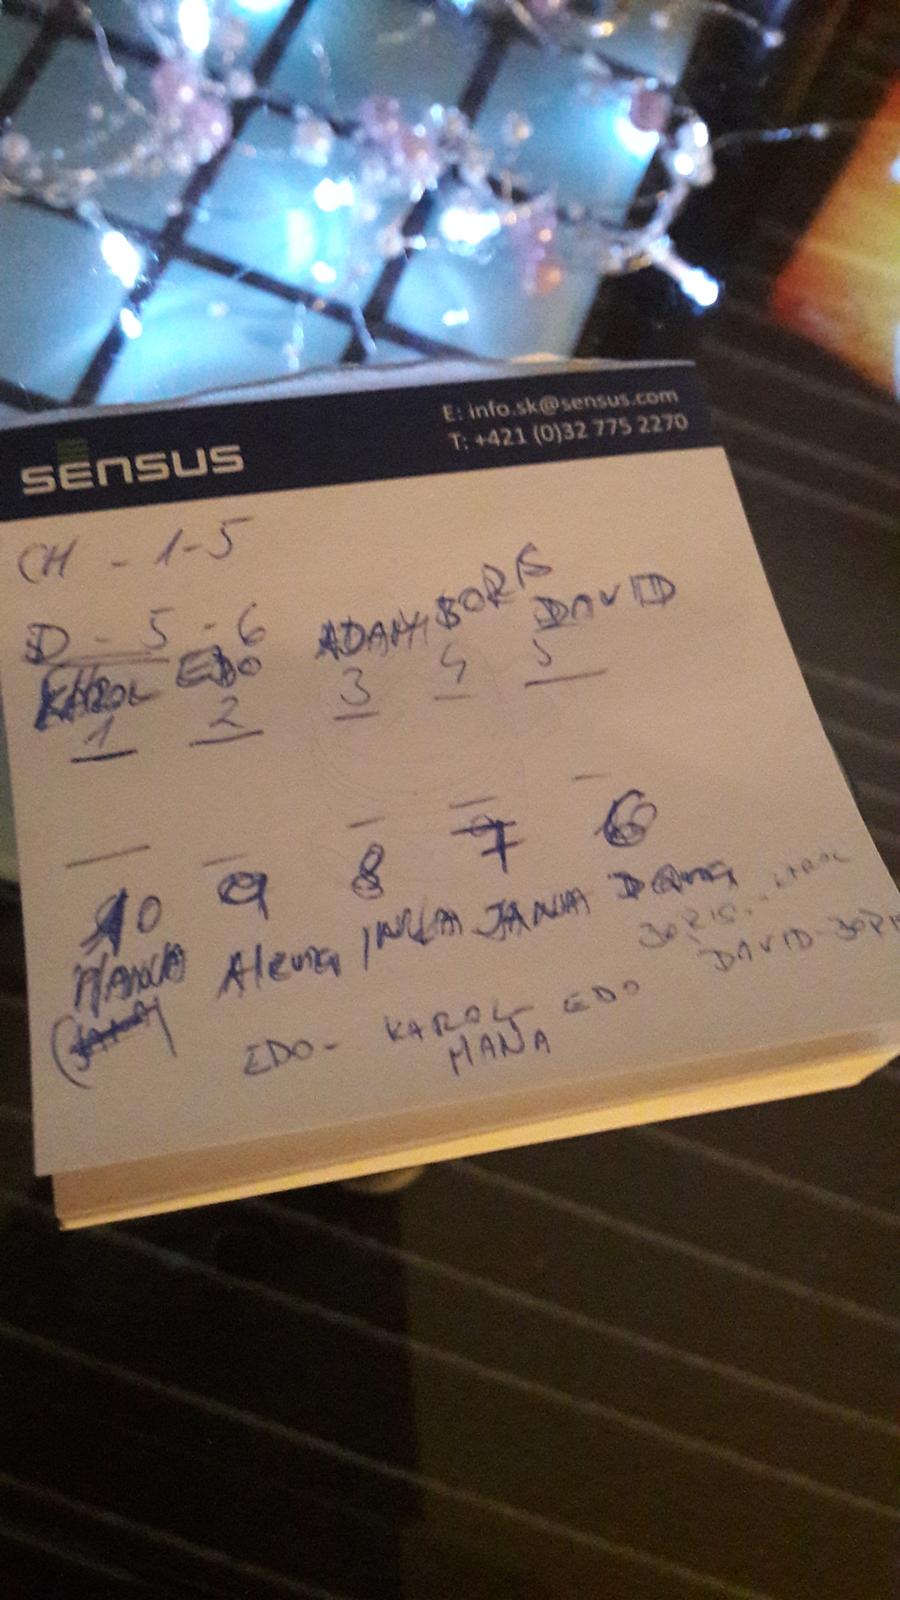 SENSUS
E: info.sk@sensus.com
T: +421 (0)32 775 2270
CH - 1-5
D - 5 - 6
KAROL EDO ADAM BORIS DAVID
1 2 3 4 5
10 9 8 7 6
HANA Alena INKA JANA Dana
BORIS..
DAVID-BORIS
EDO- KAROL EDO
HANA